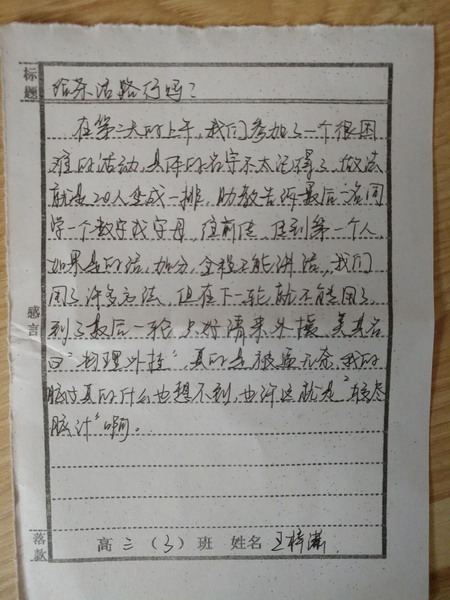 标题
给条活路行吗?
在第二天的上午,我们参加了一个很困
难的活动,具体的名字不太记得了,做法
就是20人坐成一排,助教告诉最后一名同
学一个数字或字母,往前传,传到第一个人,
如果是的话,加分,全程不能讲话,我们
用了许多方法,但在下一轮,就不能用了,
到了最后一轮,只好请来外援,美其名
曰"物理外挂"真的是被逼无奈,我的
脑子真的什么也想不到,也许这就是"绞尽
脑汁"啊。
感言
落款
高三(3)班 姓名 王梓潇